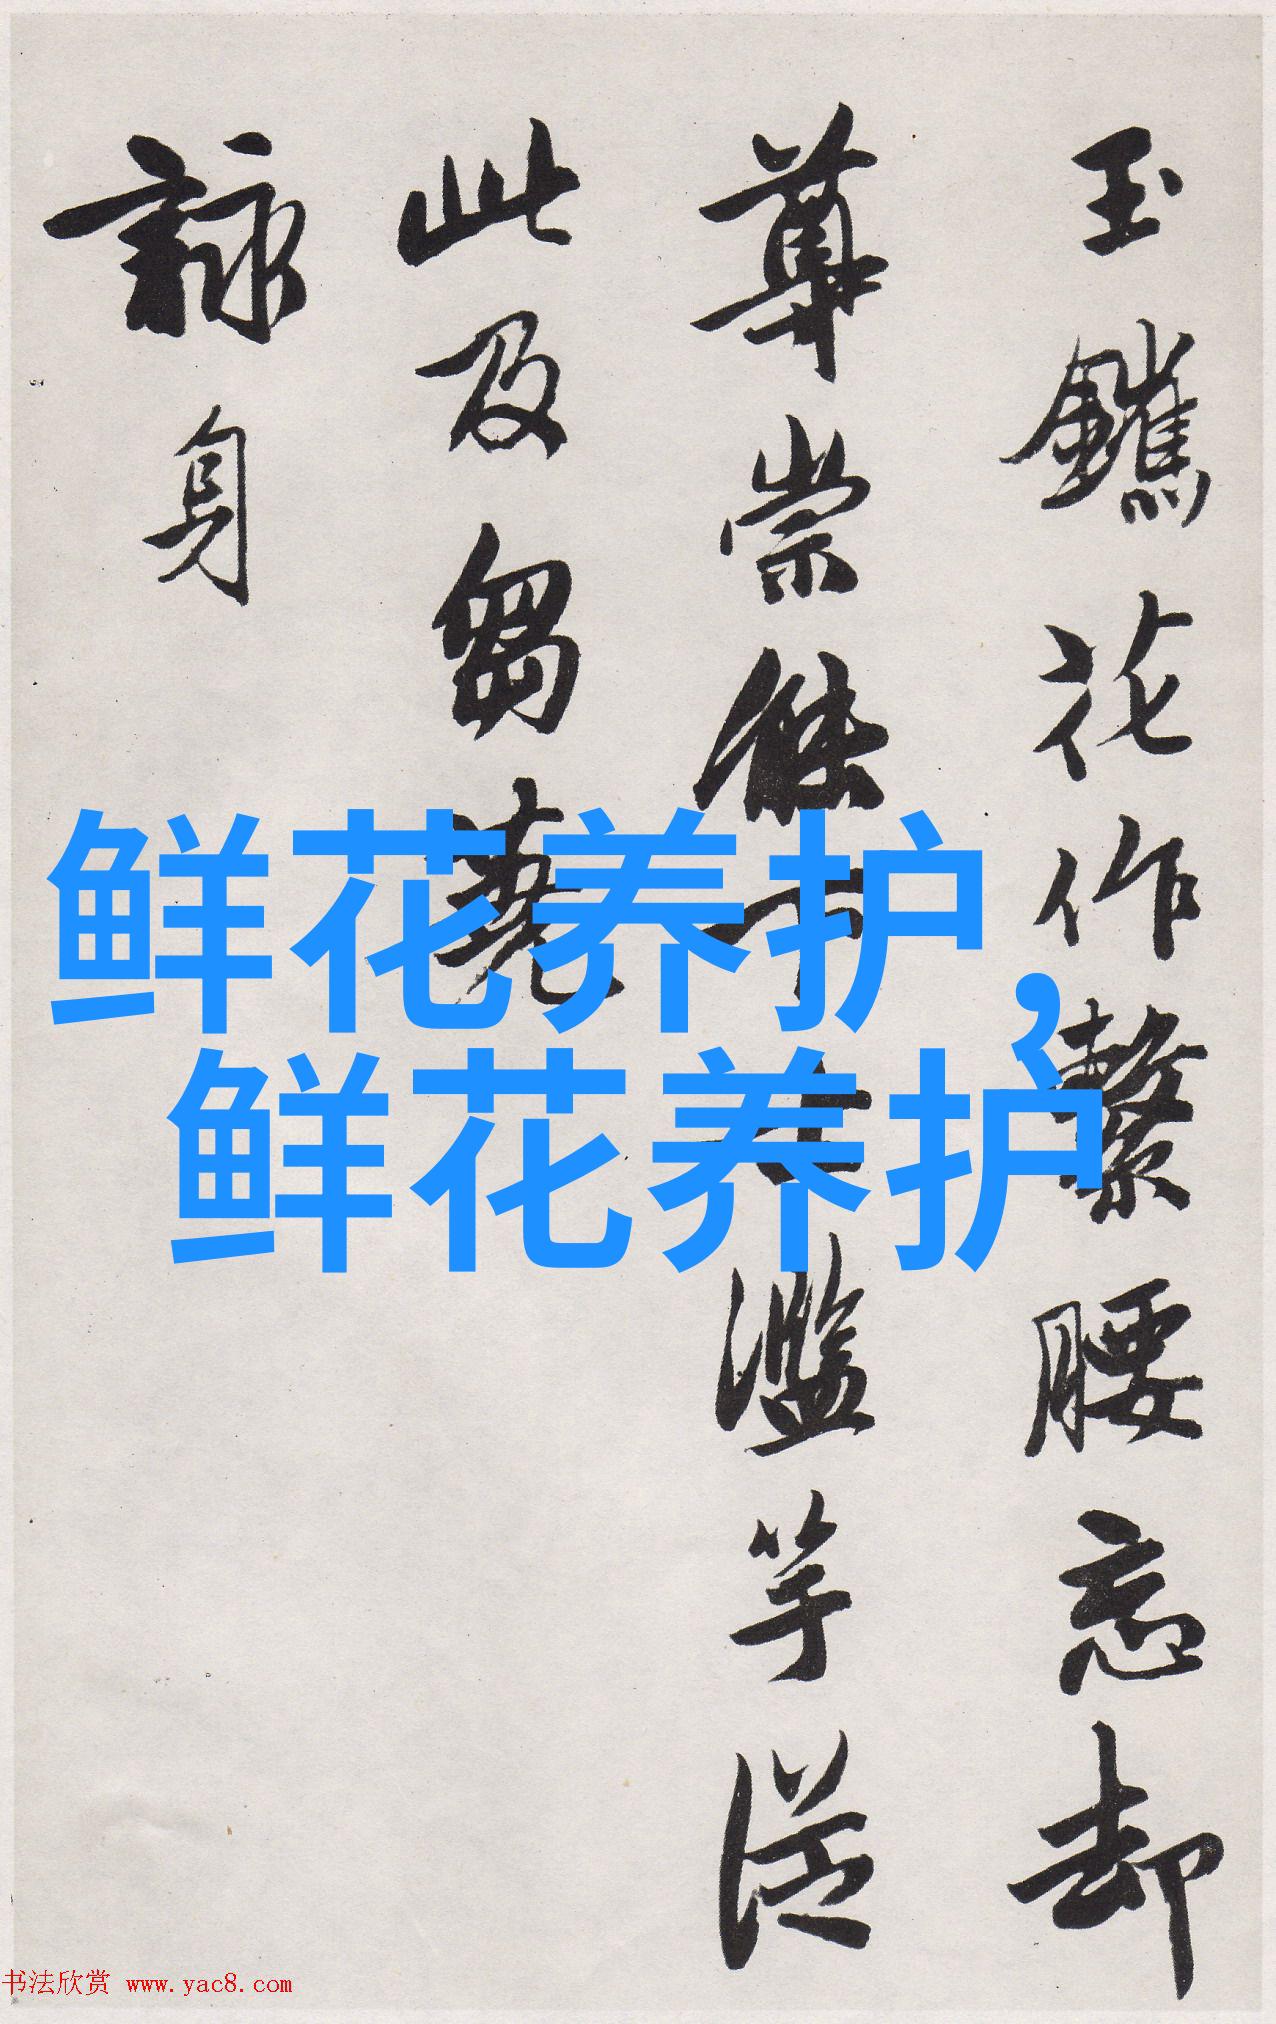 玉鑴花作繫腰忘却
尊崇傑下士濫竽從
此及芻蕘
詠身
鲜花养护,
鲜花养护
书法欣赏 www.yac8.com